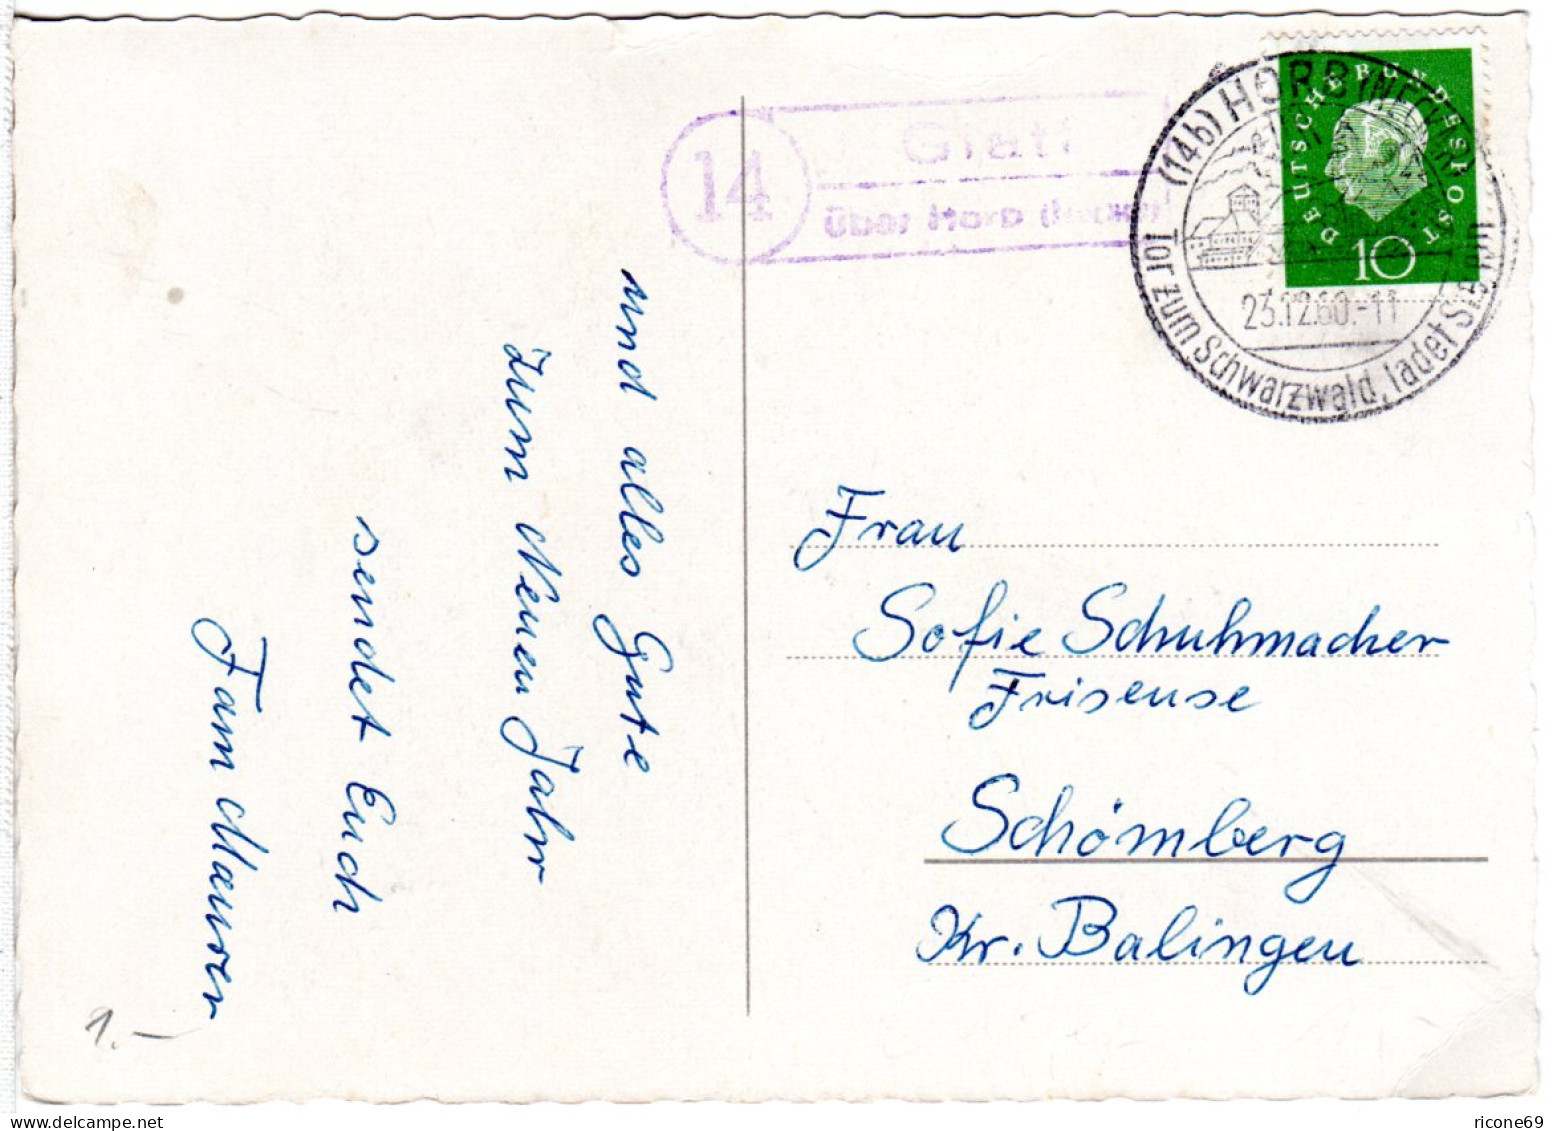 und alles Gute
zum Neuen Jahr
sendet Euch
Fam Maurer
1.-
14
Glatt
über Horb (Neckar)
(14b) HORB (NECKAR)
23.12.60.-11
Tor zum Schwarzwald, ladet Sie ein
DEUTSCHE BUNDESPOST
10
Frau
Sofie Schuhmacher
Friseuse
Schömberg
Kr. Balingen
ricone69